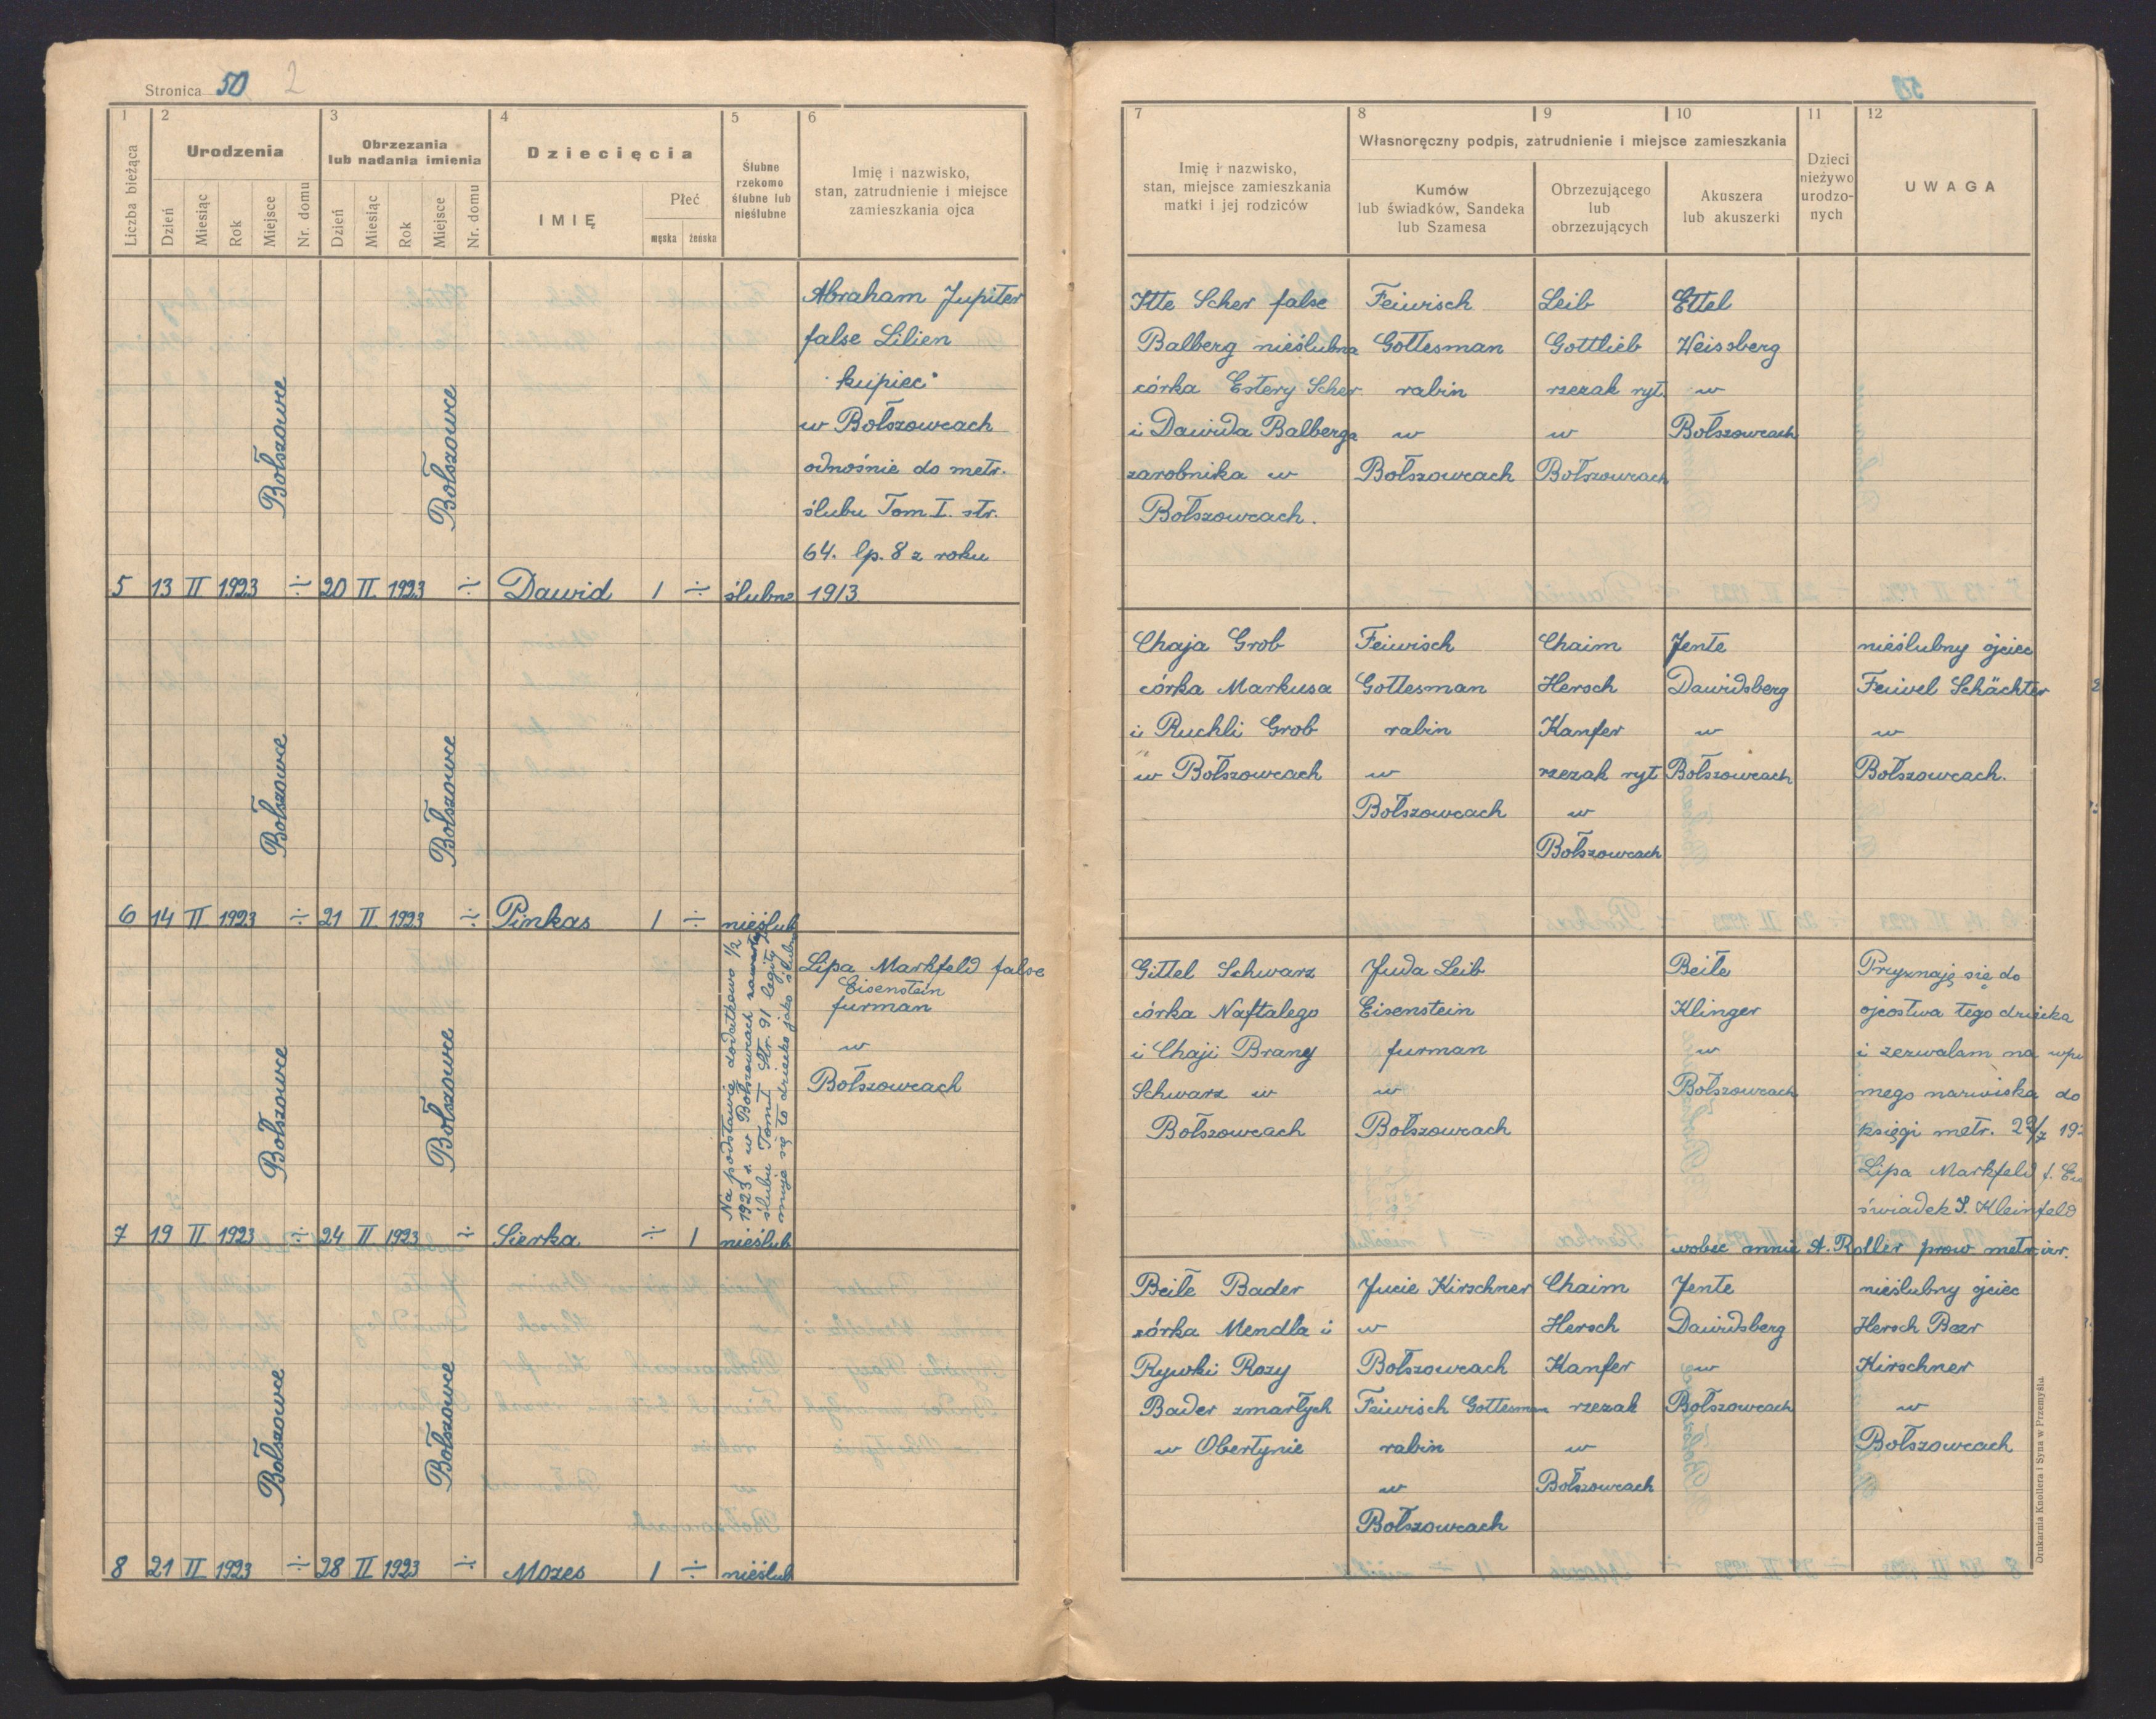 Stronica 50 2
1 2 3 4 5 6
Liczba bieżąca
Urodzenia
Obrzezania
lub nadania imienia
Dziecięcia
Ślubne
rzekomo
ślubne lub
nieślubne
Imię i nazwisko,
stan, zatrudnienie i miejsce
zamieszkania ojca
Dzień Miesiąc Rok Miejsce Nr. domu
Dzień Miesiąc Rok Miejsce Nr. domu
IMIĘ
Płeć
męska żeńska
Abraham Jupiter
false Lilien
kupiec
w Bołszowcach
odnośnie do metr.
ślubu Tom I. str.
64. lp. 8 z roku
1913
Bołszowce
Bołszowce
5 13 II 1923 ÷ 20 II 1923 ÷ Dawid 1 ÷ ślubne
Bołszowce
Bołszowce
6 14 II 1923 ÷ 21 II 1923 ÷ Pinkas 1 ÷ nieślub
Lipa Markfeld false
Eisenstein
furman
w
Bołszowcach
Na podstawie dodatkowo 1/2
1923 r. w Bołszowcach zawartego
ślubu Tom I Str. 91 legity
muje się to dziecko jako ślubne
Bołszowce
Bołszowce
7 19 II 1923 ÷ 24 II 1923 ÷ Sierka ÷ 1 nieślub
Bołszowce
Bołszowce
8 21 II 1923 ÷ 28 II 1923 ÷ Mozes 1 ÷ nieślub
7 8 9 10 11 12
Imię i nazwisko,
stan, miejsce zamieszkania
matki i jej rodziców
Własnoręczny podpis, zatrudnienie i miejsce zamieszkania
Kumów
lub świadków, Sandeka
lub Szamesa
Obrzezującego
lub
obrzezujących
Akuszera
lub akuszerki
Dzieci
nieżywo
urodzo-
nych
UWAGA
Itte Scher false
Balberg nieślubna
córka Estery Scher
i Dawida Balberga
zarobnika w
Bołszowcach.
Feiwisch
Gottesman
rabin
w
Bołszowcach
Leib
Gottlieb
rzezak ryt.
w
Bołszowcach
Ettel
Weissberg
w
Bołszowcach
Chaja Grob
córka Markusa
i Ruchli Grob
w Bołszowcach
Feiwisch
Gottesman
rabin
w
Bołszowcach
Chaim
Hersch
Kanfer
rzezak ryt
w
Bołszowcach
Jente
Dawidsberg
w
Bołszowcach
nieślubny ojciec
Feiwel Schächter
w
Bołszowcach.
Gittel Schwarz
córka Naftalego
i Chaji Brany
Schwarz w
Bołszowcach
Juda Leib
Eisenstein
furman
w
Bołszowcach
Beile
Klinger
w
Bołszowcach
Przyznaję się do
ojcostwa tego dziecka
i zezwalam na wpi
mego nazwiska do
księgi metr. 29/7 192
Lipa Markfeld f. Eis
świadek J. Kleinfeld
wobec mnie A. Roller prow metr. izr.
Beile Bader
córka Mendla i
Rywki Rozy
Bader zmarłych
w Obertynie
Jucie Kirschner
w
Bołszowcach
Feiwisch Gottesman
rabin
w
Bołszowcach
Chaim
Hersch
Kanfer
rzezak
w
Bołszowcach
Jente
Dawidsberg
w
Bołszowcach
nieślubny ojciec
Hersch Bear
Kirschner
w
Bołszowcach
Drukarnia Knollera i Syna w Przemyślu.